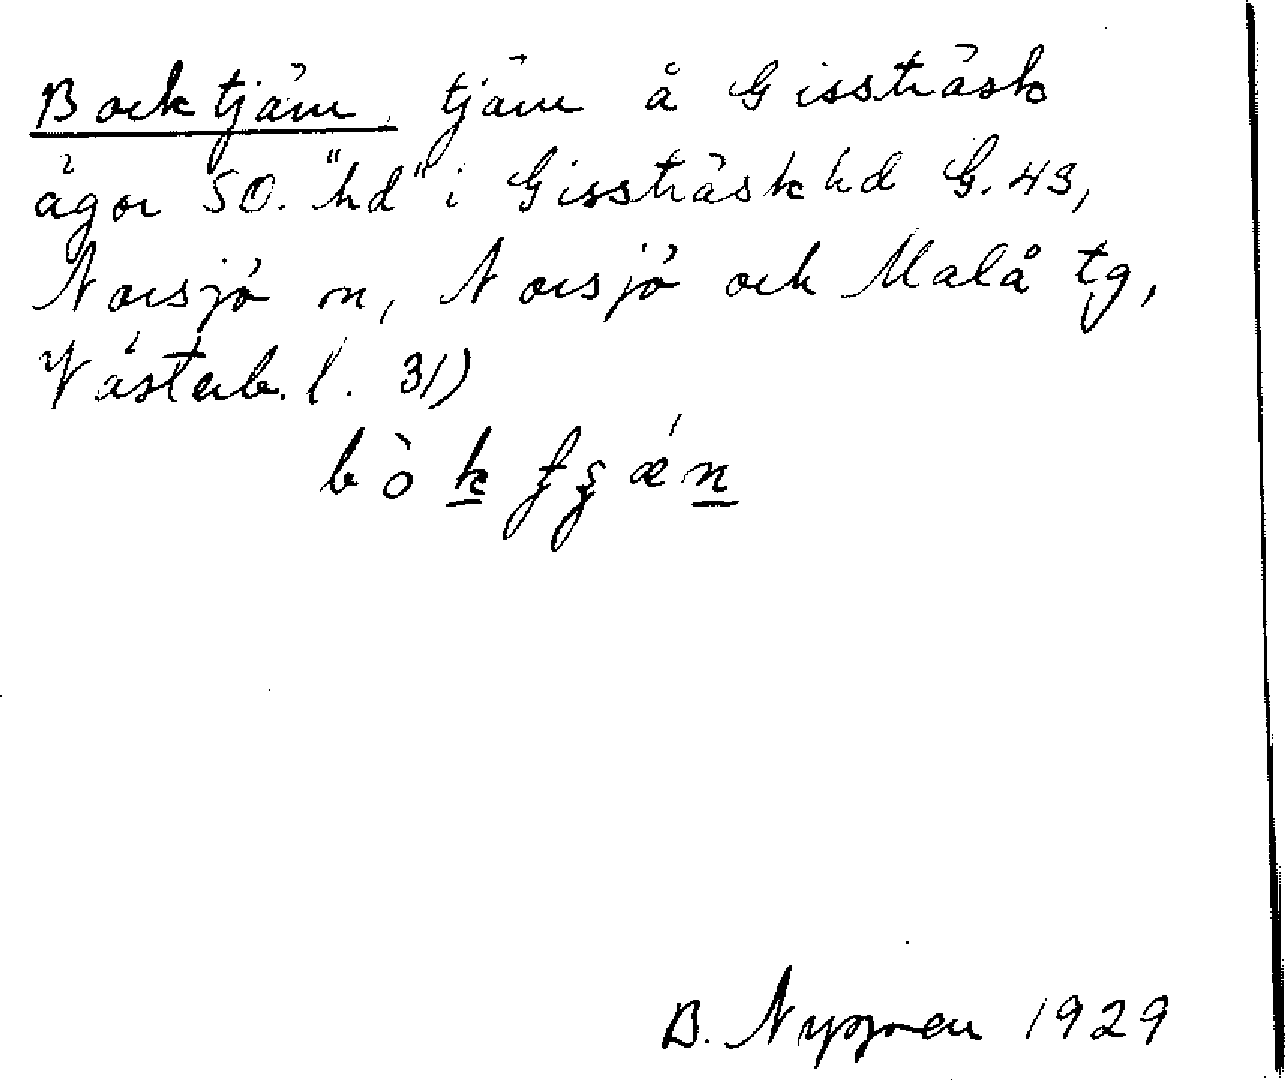 Bocktjärn, tjärn å Gissträsk
ägor SO. "hd" i Gissträsk hd G.43,
Norsjö sn, Norsjö ock Malå tg,
Västerb. l. 31)
bòk
B. Nygren 1929